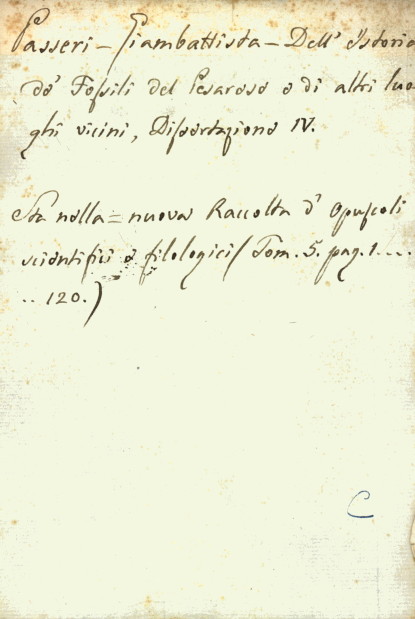 Passeri - Giambattista - Dell' Istoria
de' Fossili del Pesarese e di altri luo
ghi vicini, Dissertazione IV.
Sta nella = nuova Raccolta d' Opuscoli
scientifici e filologici ( Tom. 5. pag. 1....
.. 120. )
C